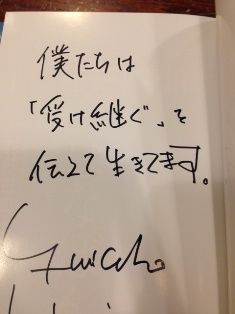 僕たちは
「受け継ぐ」を
伝えて生きてます。